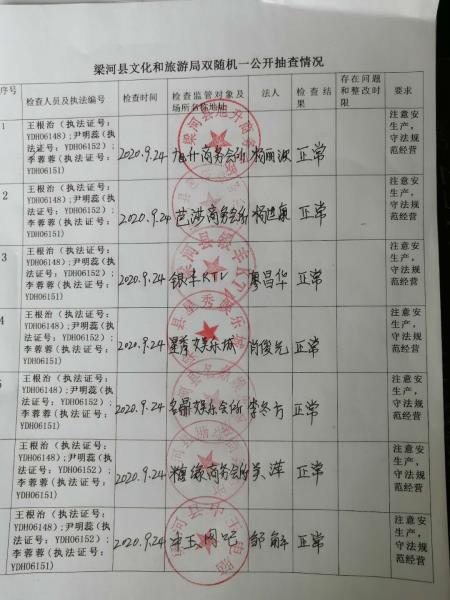 梁河县文化和旅游局双随机一公开抽查情况
序号 检查人员及执法编号 检查时间 检查监管对象及场所名称地址 法人 检查结果 存在问题和整改时限 要求
1 王根治（执法证号：YDH06148）;尹明蕊(执法证号：YDH06152）;李蓉蓉（执法证号：YDH06151） 2020.9.24 旭升商务会所 杨丽波 正常 注意安生产，守法规范经营
2 王根治（执法证号：YDH06148）;尹明蕊(执法证号：YDH06152）;李蓉蓉（执法证号：YDH06151） 2020.9.24 商务会所 正常 注意安生产，守法规范经营
3 王根治（执法证号：YDH06148）;尹明蕊(执法证号：YDH06152）;李蓉蓉（执法证号：YDH06151） 2020.9.24 银丰KTV 廖昌华 正常 注意安生产，守法规范经营
4 王根治（执法证号：YDH06148）;尹明蕊(执法证号：YDH06152）;李蓉蓉（执法证号：YDH06151） 2020.9.24 星秀娱乐城 肖俊光 正常 注意安生产，守法规范经营
5 王根治（执法证号：YDH06148）;尹明蕊(执法证号：YDH06152）;李蓉蓉（执法证号：YDH06151） 2020.9.24 名鼎娱乐会所 李冬方 正常 注意安生产，守法规范经营
王根治（执法证号：YDH06148）;尹明蕊(执法证号：YDH06152）;李蓉蓉（执法证号：YDH06151） 2020.9.24 缘商务会所 吴萍 正常 注意安生产，守法规范经营
王根治（执法证号：YDH06148）;尹明蕊(执法证号：YDH06152）;李蓉蓉（执法证号：YDH06151） 2020.9.24 网吧 邹 正常 注意安生产，守法规范经营